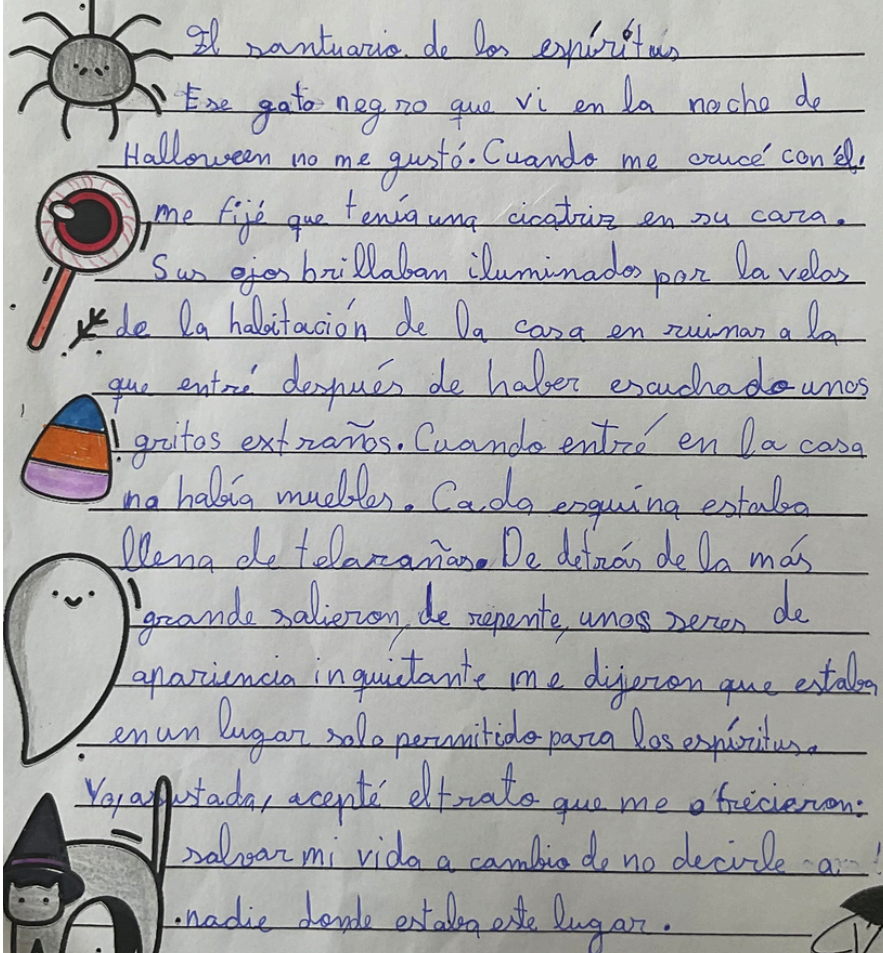 El santuario de los espíritus
Ese gato negro que vi en la noche de
Halloween no me gustó. Cuando me crucé con él,
me fijé que tenía una cicatriz en su cara.
Sus ojos brillaban iluminados por la velas
de la habitación de la casa en ruinas a la
que entré después de haber escuchado unos
gritos extraños. Cuando entré en la casa
no había muebles. Cada esquina estaba
llena de telarañas. De detrás de la más
grande salieron, de repente, unos seres de
apariencia inquietante me dijeron que estaba
en un lugar solo permitido para los espíritus.
Yo, asustada, acepté el trato que me ofrecieron:
salvar mi vida a cambio de no decirle a
nadie donde estaba este lugar.